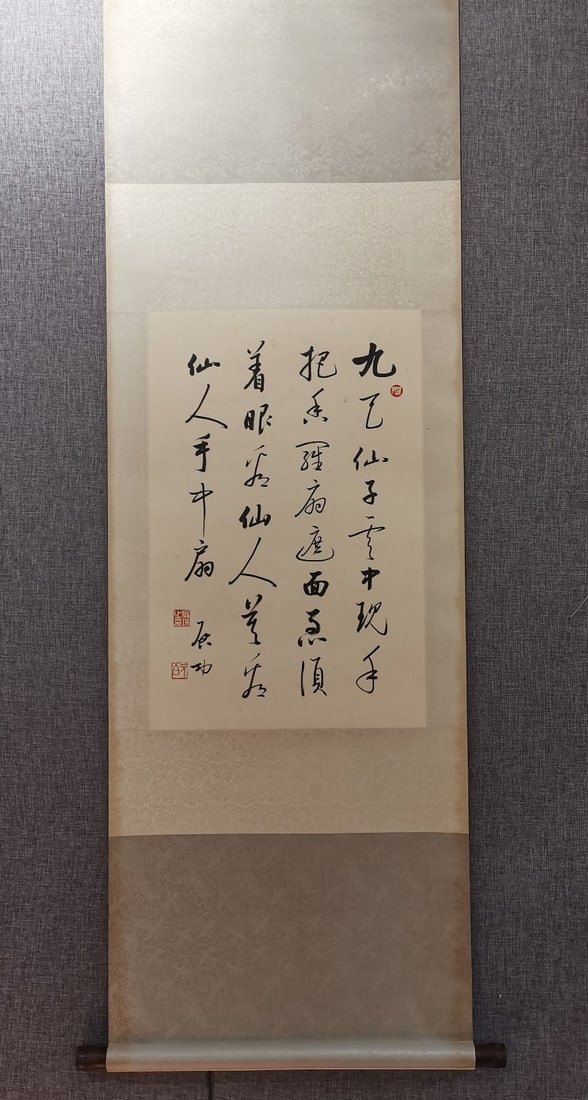 九天仙子雲中現手
把香羅扇遮面急須
着眼看仙人莫看
仙人手中扇
启功